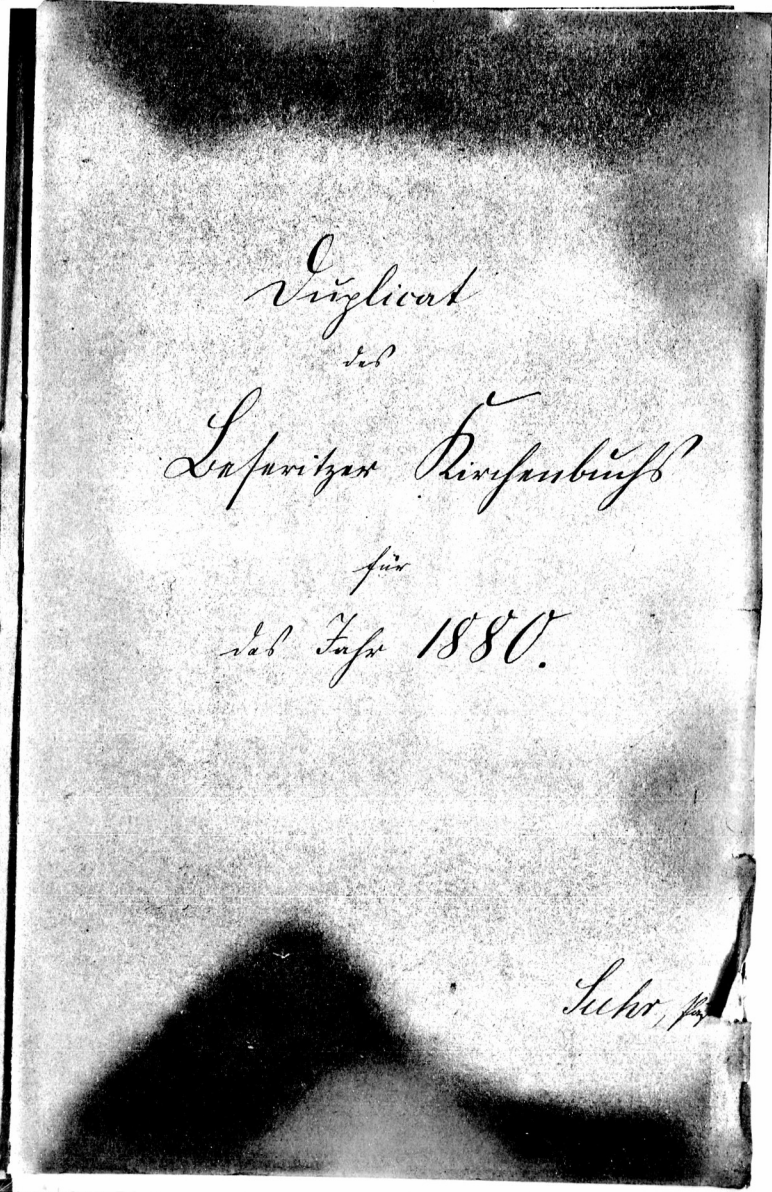 Duplicat
des
Beseritzer Kirchenbuchs
für
das Jahr 1880.
Suhr,